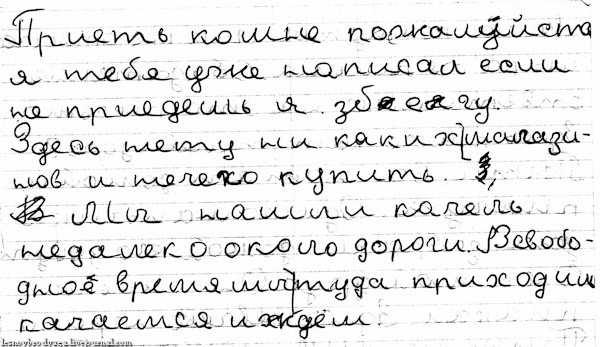 Приеть комне пожалуйста
я тебе уже написал если
не приедешь я збегу.
Здесь нету ни каких магази-
нов и нечего купить.
Мы нашли качель
недалеко около дороги. Всвобо-
дное время мы туда приходим
качаемся и ждём.
lesnoybrodyaga.livejournal.com